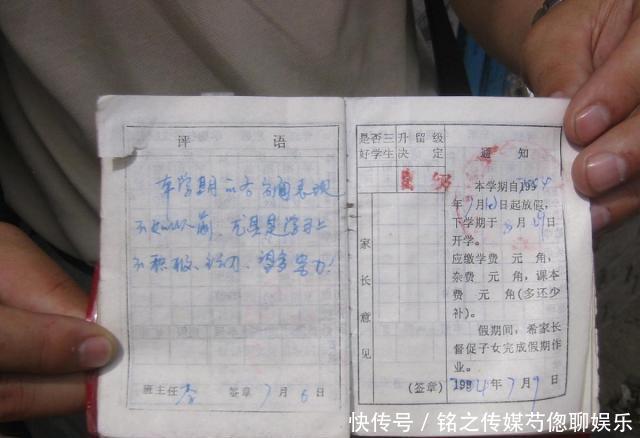 评 语
本学期 各方面表现
不如以前,尤其是学习上
不积极、主动、望多努力!
班主任 李 签章 7月6日
是否三好学生
升留级决定
通知
升级
本学期自1994
年7月10日起放假,
下学期于 8月29日
开学。
应缴学费 元 角,
杂费 元 角,课本
费 元 角(多还少
补)。
假期间,希家长
督促子女完成假期作
业。
家长意见
(签章) 1994年7月9日
快传号/铭之传媒芍偬聊娱乐